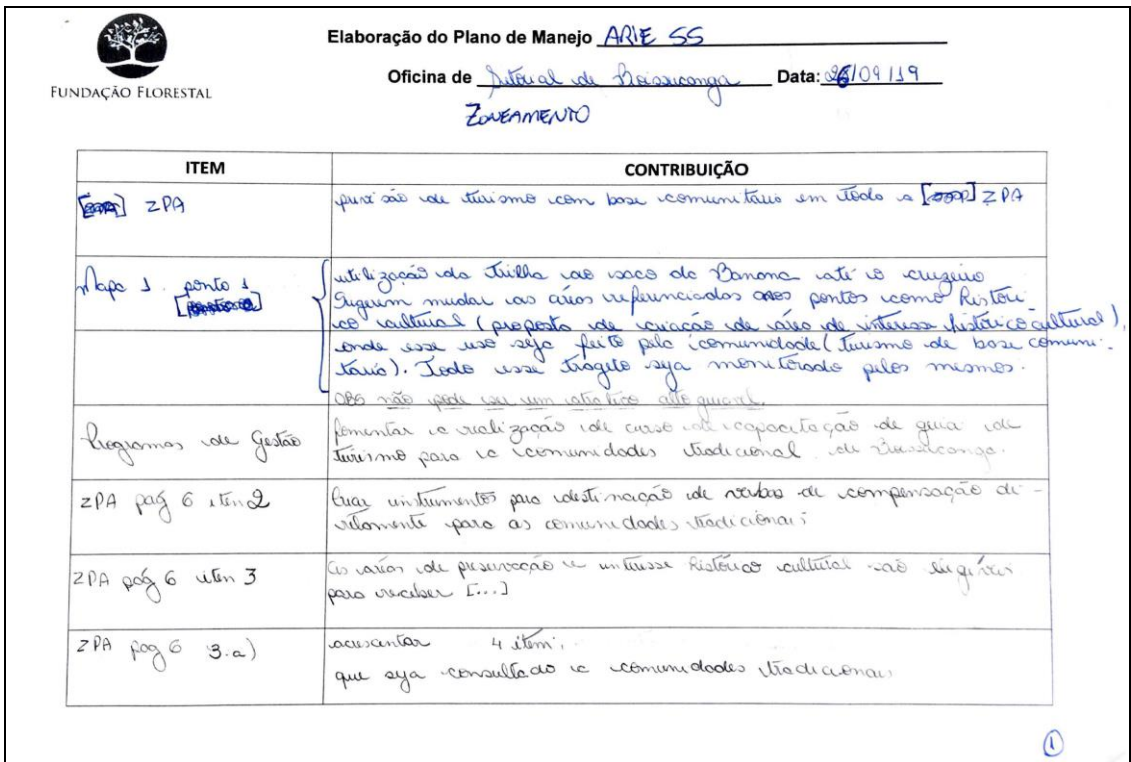 FUNDAÇÃO FLORESTAL
Elaboração do Plano de Manejo ARIE SS
Oficina de Setorial de Boissucanga Data: 26/09/19
ZONEAMENTO
ITEM CONTRIBUIÇÃO
ZPA
previsão de turismo com base comunitário em todo a ZPA
Mapa 1 ponto 1
utilização da trilha do saco da Banana até o cruzeiro
Sugerem mudar as áreas referenciadas aos pontos como históri
co cultural (proposta de criação de área de interesse histórico cultural),
onde esse uso seja feito pela comunidade (turismo de base comuni-
tário). Todo esse trageto seja monitorado pelos mesmos.
OBS não pode ser um atrativo
Programas de Gestão
fomentar a realização de curso de capacitação de guia de
turismo para a comunidades tradicional de Boissucanga.
ZPA pág 6 item 2
Criar instrumentos para destinação de verbas de compensação di-
retamente para as comunidades tradicionais
ZPA pág 6 item 3
As áreas de preservação e interesse histórico cultural são
para receber [...]
ZPA pag 6 3.a)
acrescentar 4 item:
que seja consultado a comunidades tradicionais
1